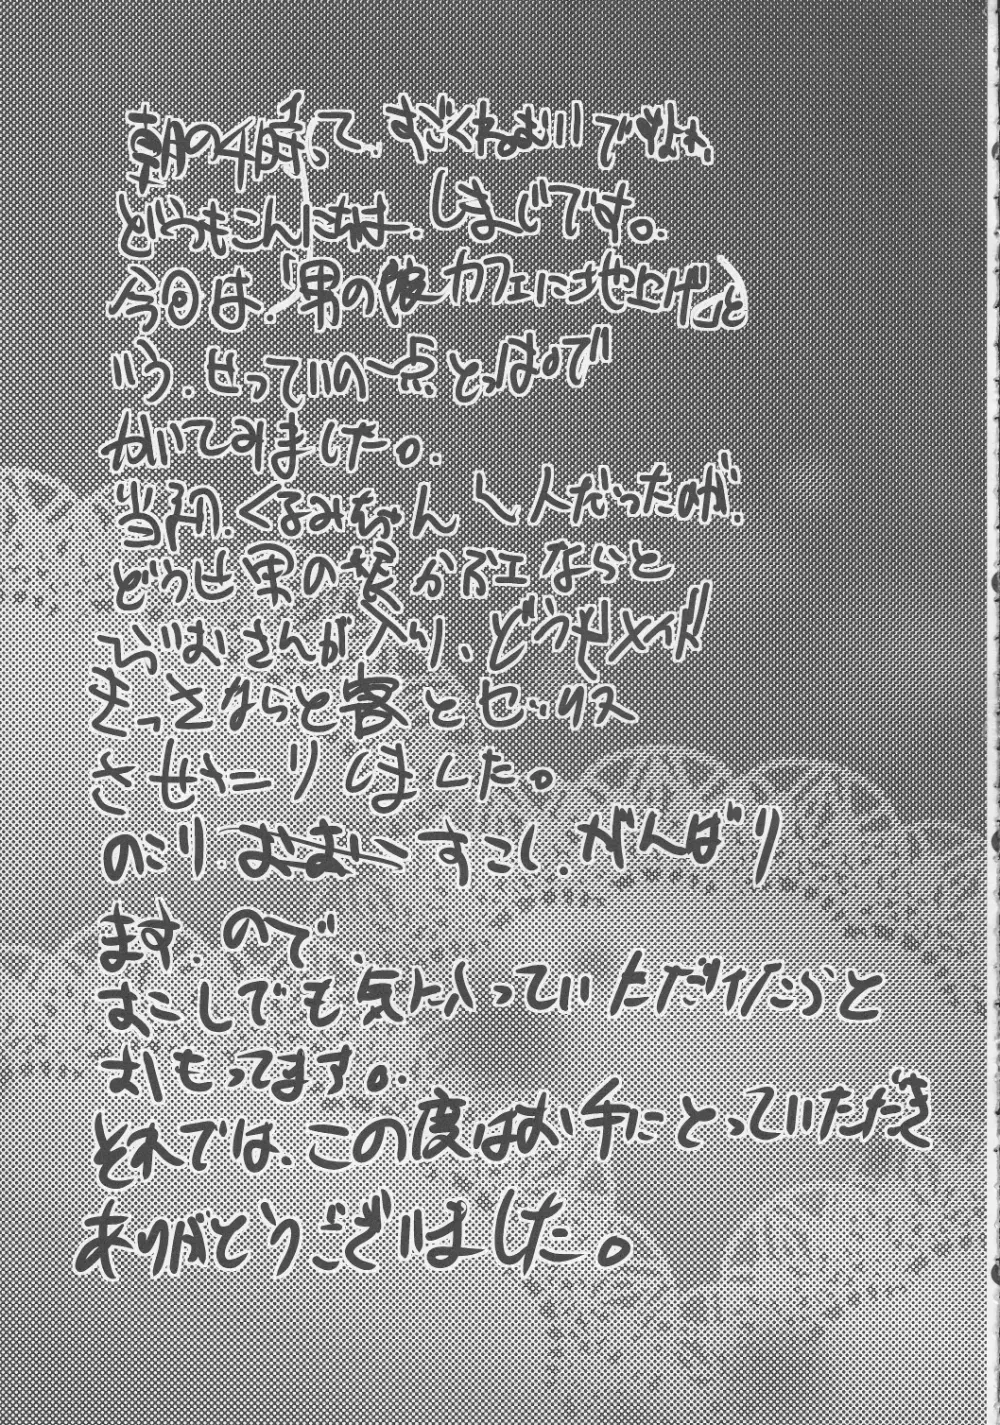 朝の4時って、すごくねむいですよね、
どうもこんにちは、しまじです。
今日は、「男の娘カフェに地上げ」と
いう、せっていの一点とっぱで
かいてみました。
当初、くるみちゃん1人だったのが、
どうせ男の娘かふェならと
おさんが入り、どうせメイド
きっさならと客とセックス
させたりしました。
のこり、すこし、がんばり
ます。ので、
すこしでも気に入っていただけたらと
おもってます。
それでは、この度はお手にとっていただき
ありがとうございました。